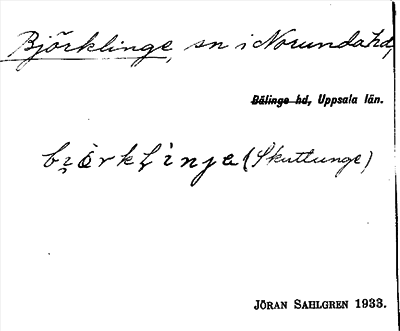 Björklinge, sn i Norunda hd,
Bälinge hd, Uppsala län.
bi̯örkl̥inje (Skuttunge)
JÖRAN SAHLGREN 1933.